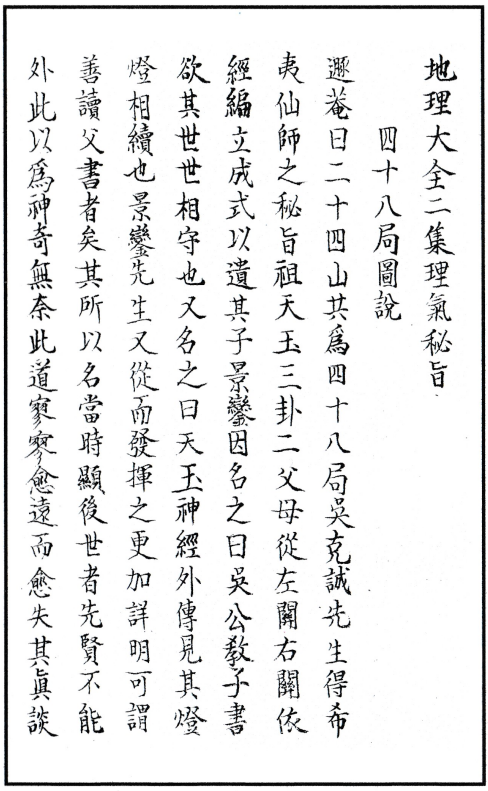 地理大全二集理氣秘旨
四十八局圖說
遯菴曰二十四山共爲四十八局吳克誠先生得希
夷仙師之秘旨祖天玉三卦二父母從左關右關依
經編立成式以遺其子景鸞因名之曰吳公敎子書
欲其世世相守也又名之曰天玉神經外傳見其燈
燈相續也景鸞先生又從而發揮之更加詳明可謂
善讀父書者矣其所以名當時顯後世者先賢不能
外此以爲神奇無奈此道寥寥愈遠而愈失其眞談